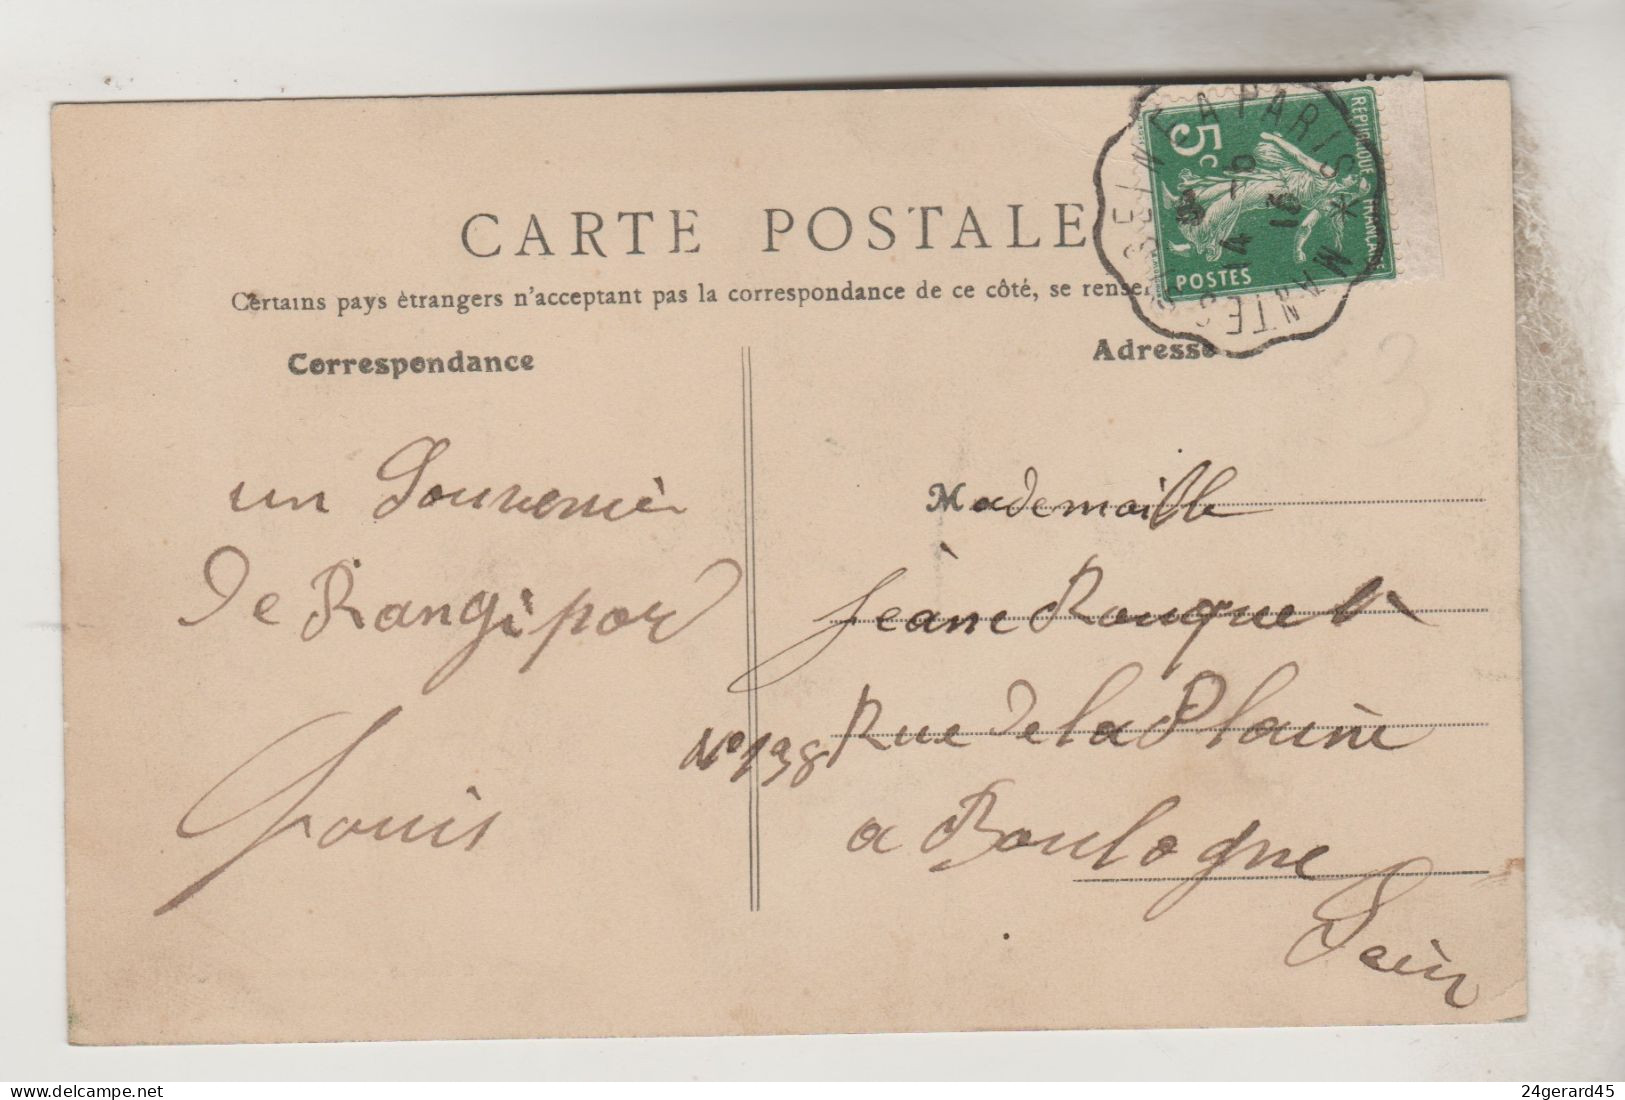 CARTE POSTALE
Certains pays étrangers n'acceptant pas la correspondance de ce côté, se rense
Correspondance
Adresse
un Souvenir
De Rangipor
Louis
Mademoiselle
Jeane Rouquet
N° 138 Rue De la Plaine
a Boulogne
Sein
5c
REPUBLIQUE FRANÇAISE
POSTES
A PARIS * MANTES
14 - 6
13
24gerard45